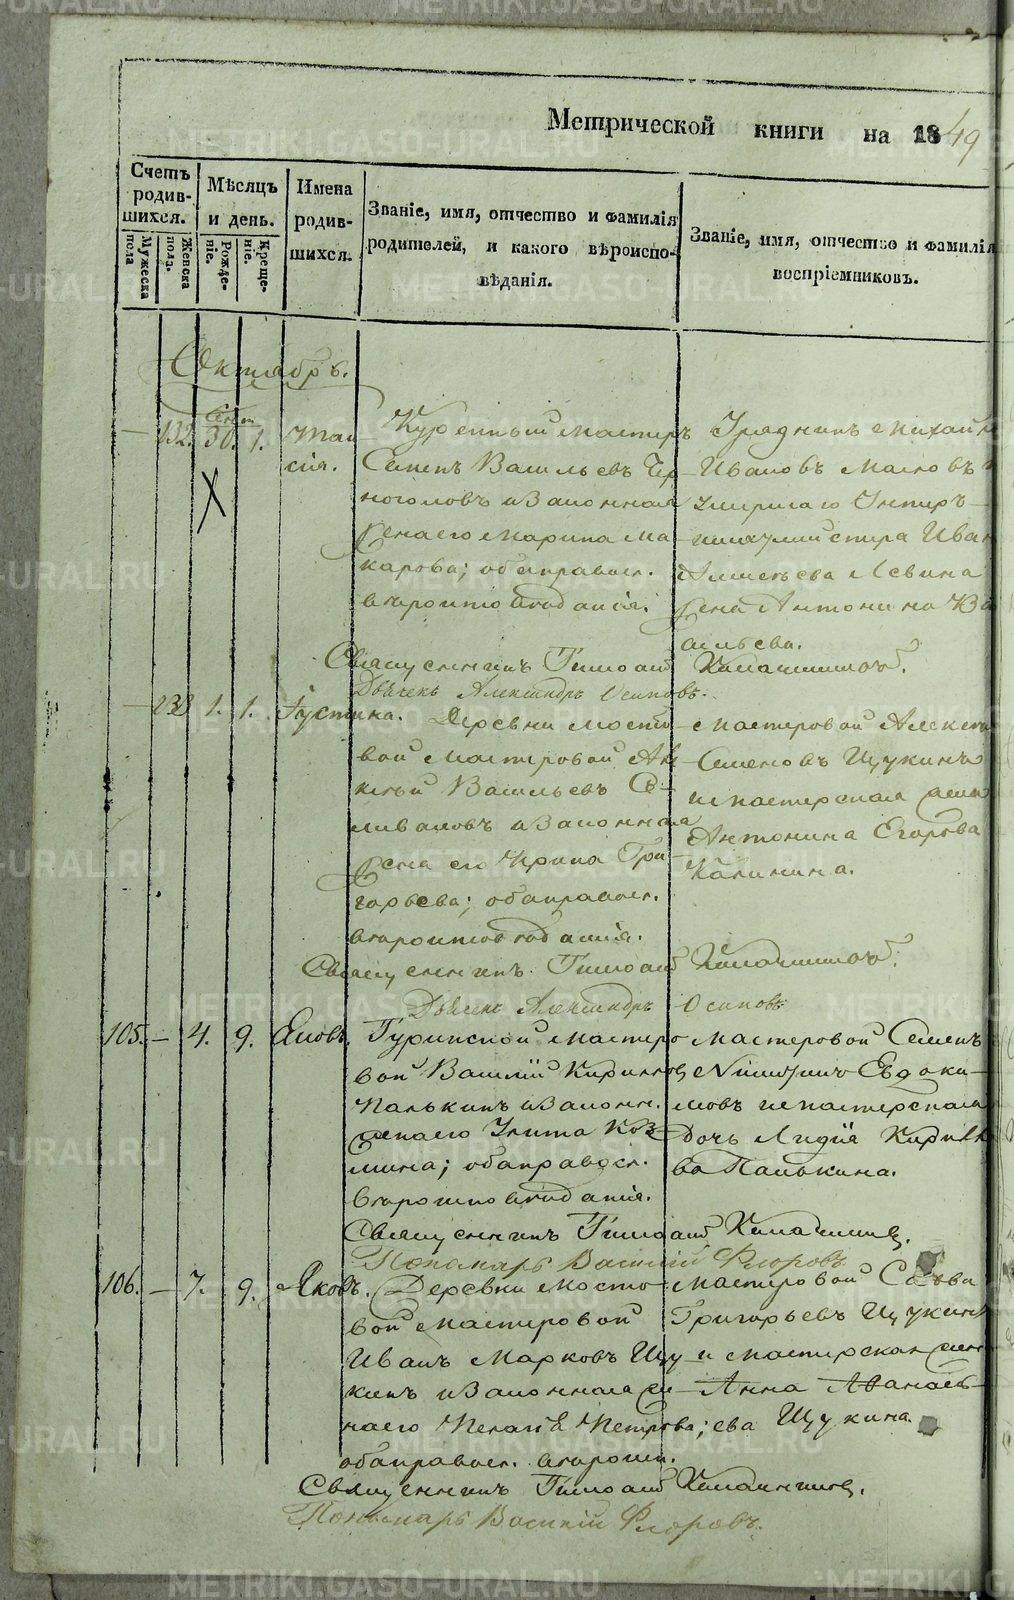 Метрической книги на 1849
Счетъ родившихся.
Мужеска пола
Женска пола.
Мѣсяцъ и день.
Рожденіе.
Крещеніе.
Имена родившихся.
Званіе, имя, отчество и фамилія
родителей, и какого вѣроиспо-
вѣданія.
Званіе, имя, отчество и фамилія
воспріемниковъ.
Октябрь.
132. Сент. 30. 1. Таи-
сія.
Куренный мастеръ
Семенъ Васильевъ Чер-
ноголовъ и законная
жена его Марина Ма-
карова; оба правосл.
вѣроисповѣданія.
Урядникъ Михайло
Ивановъ
умершаго Унтеръ-
шихтмейстера Иван
Левина
жена Антонина Ва-
сильева.
Священникъ Тимофей
Дьячекъ Александръ Осиповъ.
1. 1. Іустина.
Деревни Мосто-
вой мастеровой
Васильевъ Се-
ливановъ и законная
жена его Ирина Гри-
горьева; оба правосл.
вѣроисповѣданія.
Мастеровой Алексѣй
Семеновъ Щукинъ
и мастерская жена
Антонина Егорова
Калинина.
Священникъ Тимофей
Дьячекъ Александръ Осиповъ
105. — 4. 9. Яковъ.
мастеро-
вой Василій Кирилловъ
Палькинъ и законн.
жена его Улита Коз-
мина; оба правосл.
вѣроисповѣданія.
Мастеровой Семенъ
Евдоки-
мовъ и мастерская
дочь Лидія Кирилло-
ва Палькина.
Священникъ Тимофей
Пономарь Василій Флоровъ
106. — 7. 9. Яковъ.
Деревни Мосто-
вой мастеровой
Иванъ Марковъ Щу-
кинъ и законная же-
на его Пелагія Петрова;
оба правосл. вѣроисп.
Мастеровой Савва
Григорьевъ Щукинъ
и мастерская жена
Анна Аѳанась-
ева Щукина.
Священникъ Тимофей
Пономарь Василій Флоровъ.
METRIKI.GASO-URAL.RU